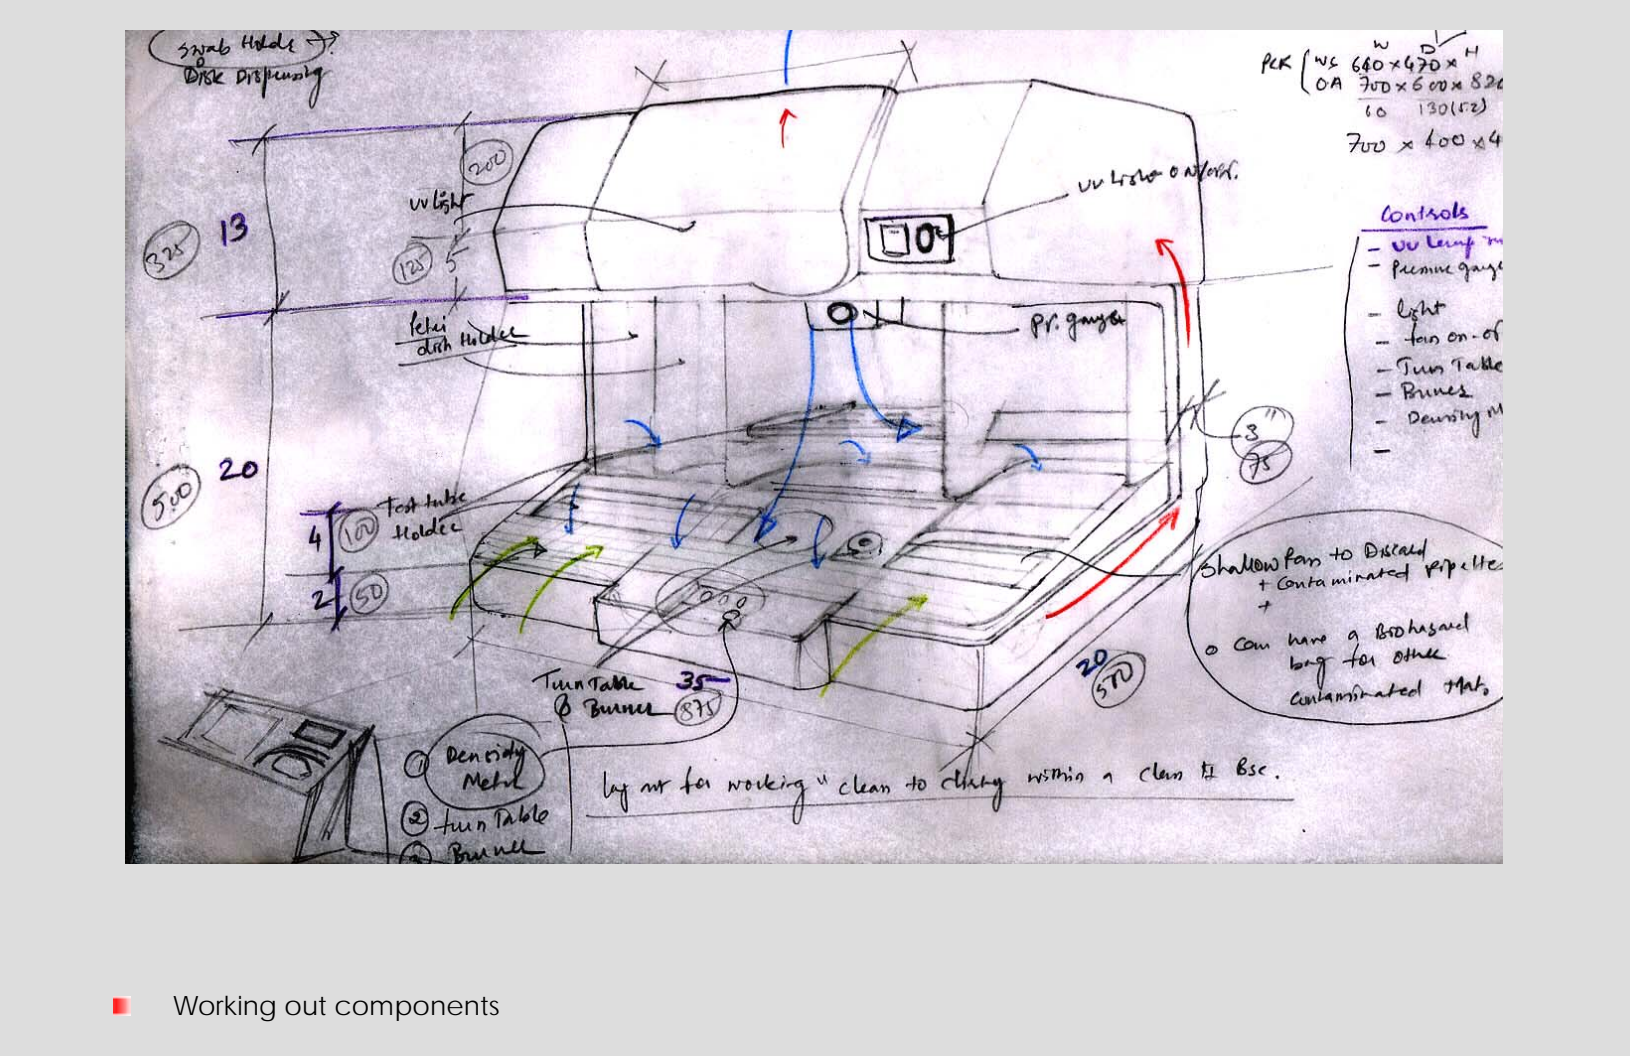 Swab Holder → ?
Disk Dispensing
W D H
WS 640 x 470 x
OA 700 x 600 x 820
60 130(52)
700 x 400 x 4
200
UV light
UV Light on/off.
13
325
125
5
Controls
- UV Lamp
- Pressure gauge
- light
- fan on-of
- Turn Table
- Burner
- Density M
-
Petri
dish Holder
Pr. gauge
3"
75
20
500
4
100
Test tube
Holder
2
50
Shallow Pan to Discard
+ Contaminated pipette
+
o Can have a Biohazard
bag for other
Contaminated Mat.
20
500
Turn Table
& Burner
35
875
1 Density
Meter
2 turn Table
3 Burner
Lay out for working "clean to dirty within a Class II BSC.
Working out components